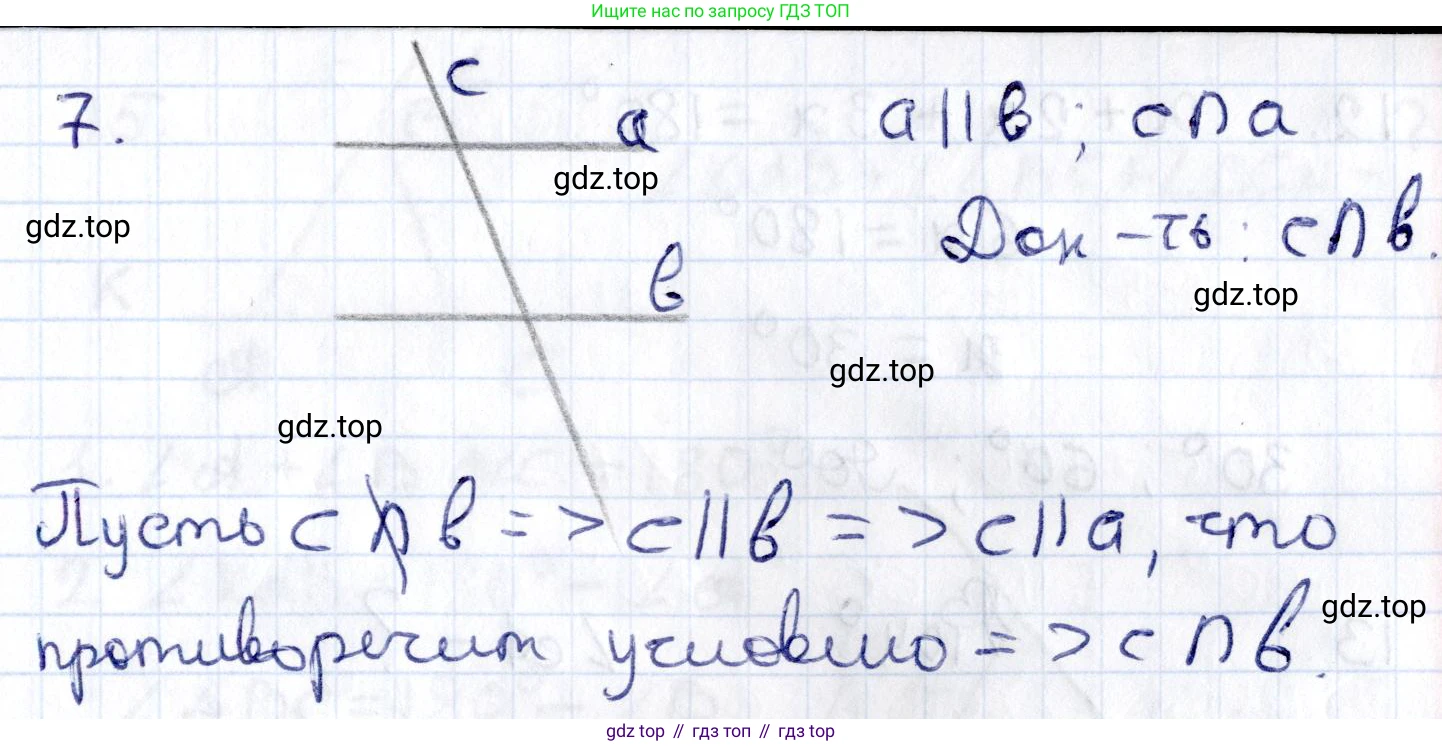 Ищите нас по запросу ГДЗ ТОП
c
7. a a || b; c ∩ a
gdz.top
gdz.top Док-ть: c ∩ b.
b gdz.top
gdz.top
gdz.top
Пусть c ∩̸ b => c || b => c || a, что
gdz.top
противоречит условию => c ∩ b.
gdz top // гдз топ // гдз top